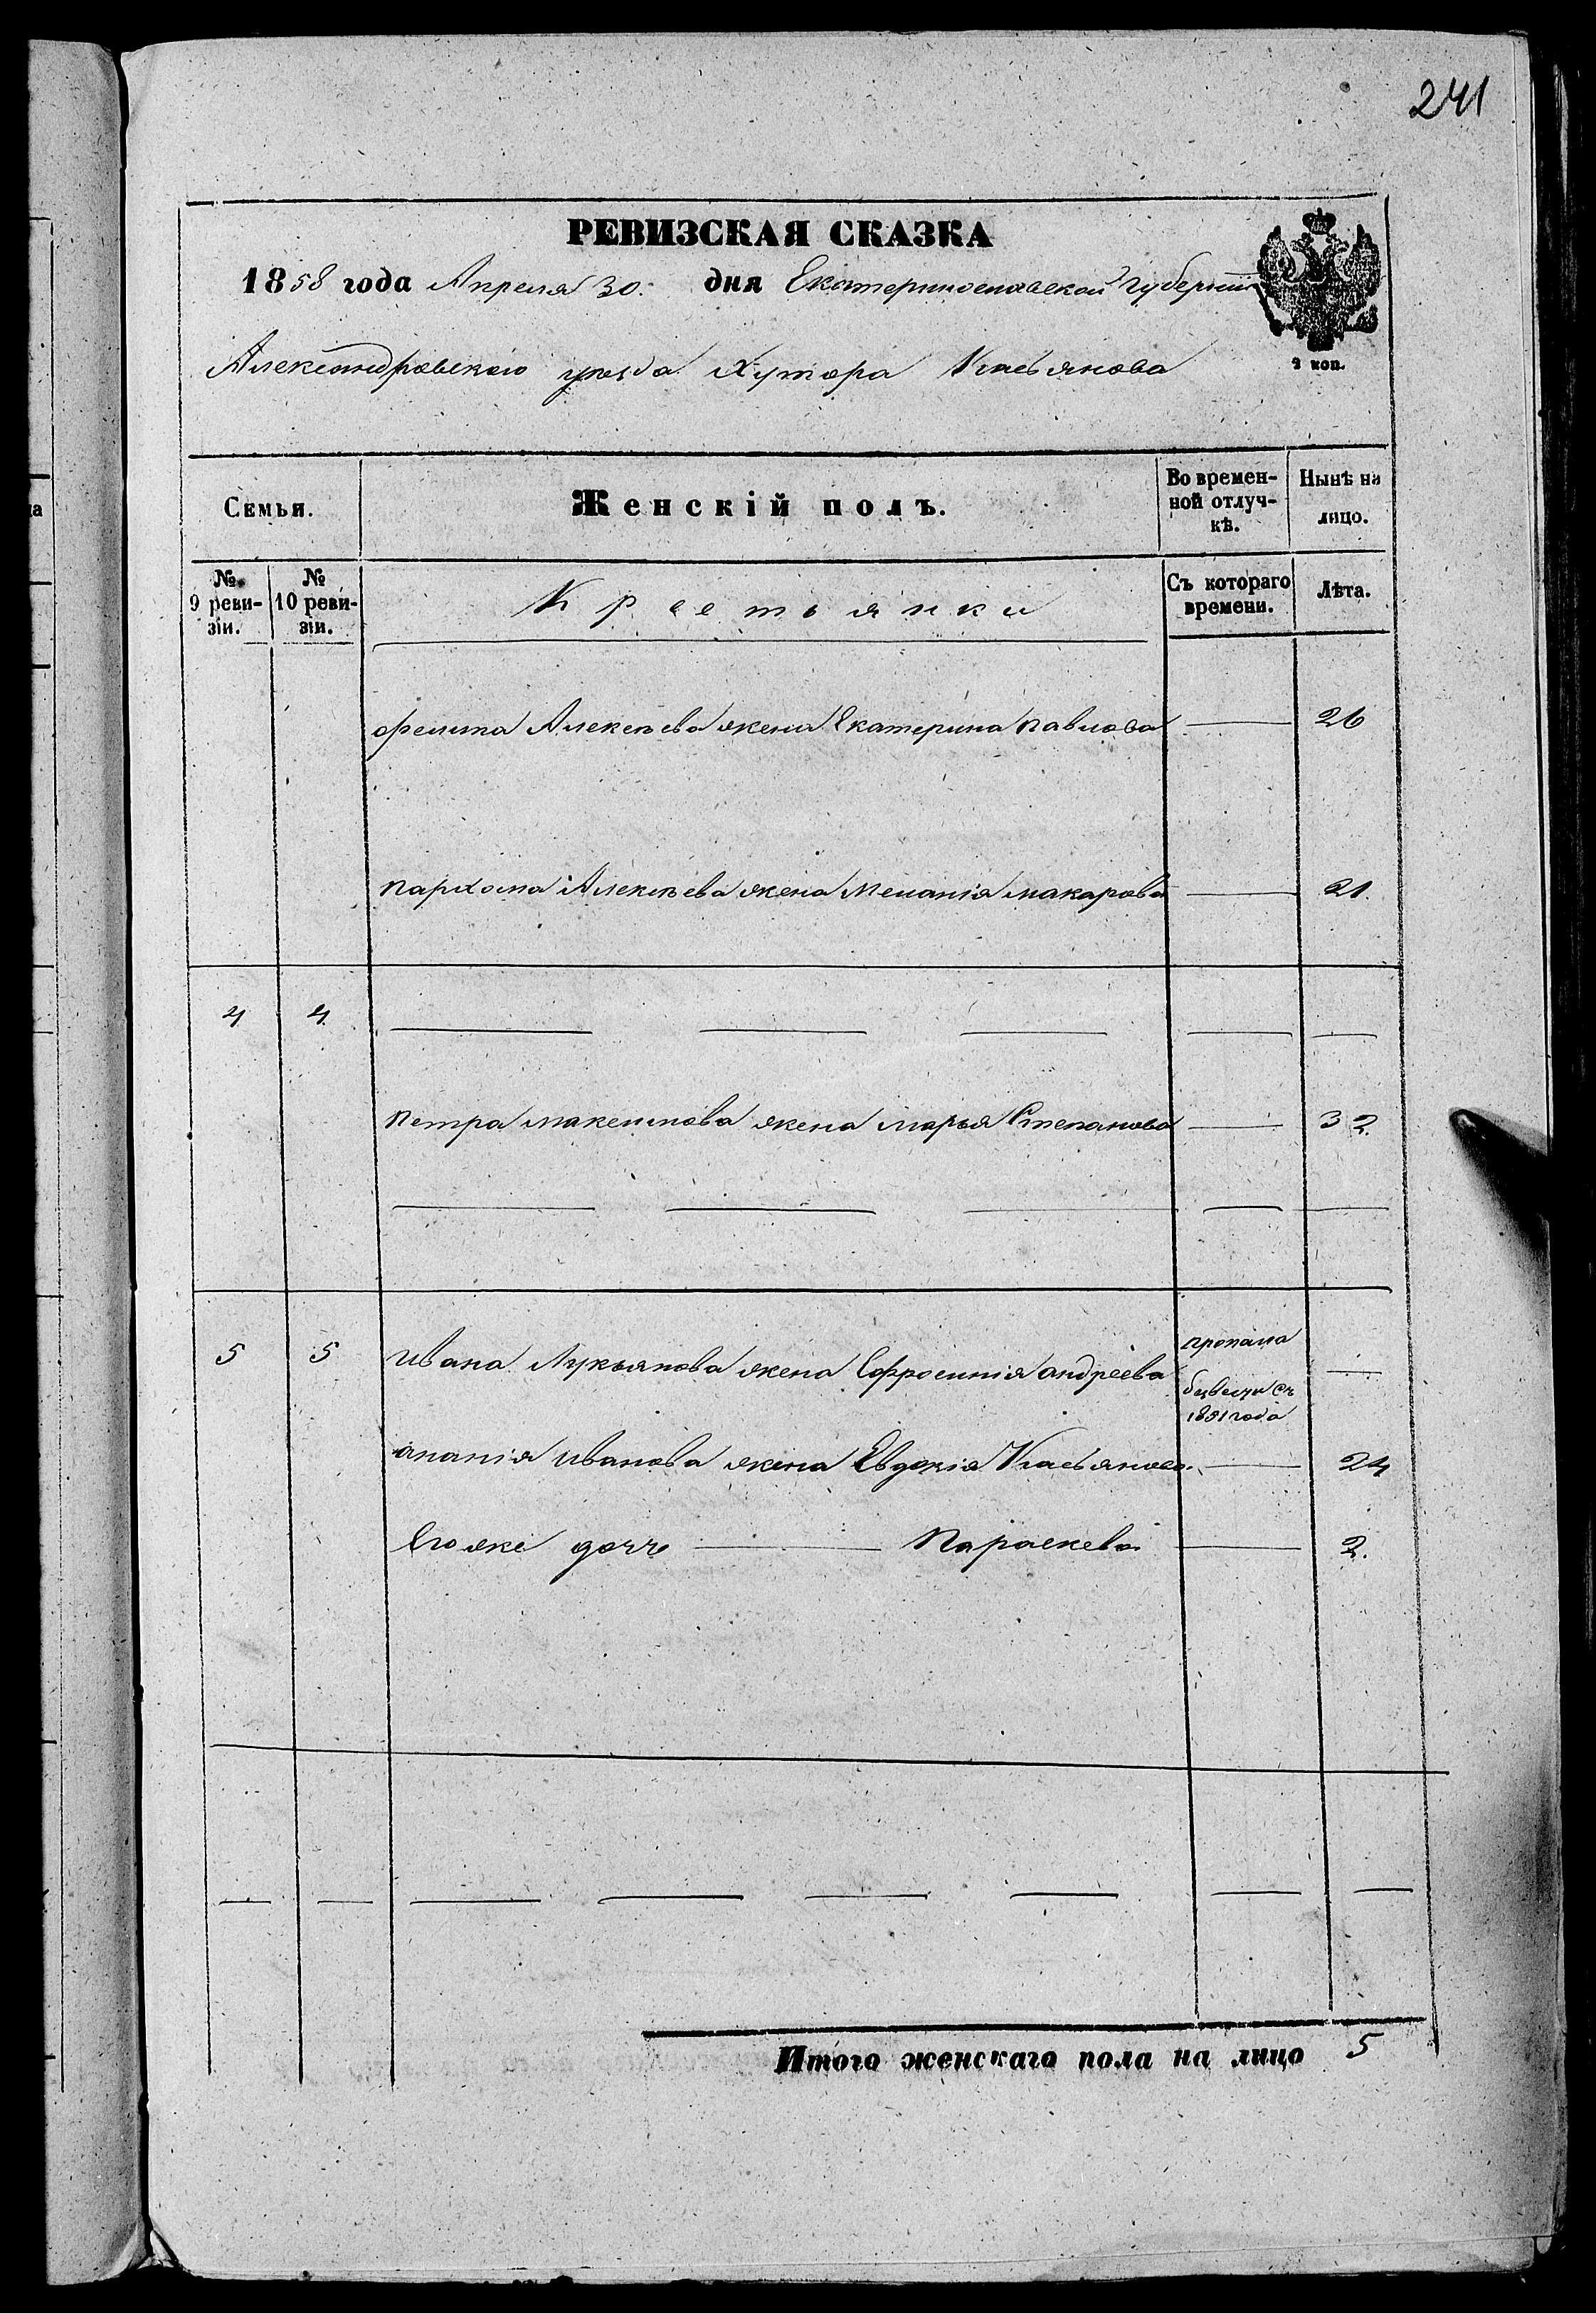 241
РЕВИЗСКАЯ СКАЗКА
1858 года Апреля 30. дня Екатеринославской Губернии
3 коп.
Александровского уезда Хутора Касьянова
Семьи.
Женскій полъ.
Во времен-
ной отлуч-
кѣ.
Нынѣ на
лицо.
№
9 реви-
зіи.
№
10 реви-
зіи.
Крестьянки
Съ котораго
времени.
Лѣта.
Алексѣева жена Екатерина Павлова 26
Пархома Алексѣева жена Меланія Макарова 21.
4 4.
Петра Максимова жена Марья Степанова 32.
5 5 Ивана Лукьянова жена Ефросинія Андреева
пропала
безвести съ
1851 года
Ананія Иванова жена Евдокія Касьянова. 24
Его же дочь Параскева 2.
Итого женскаго пола на лицо 5